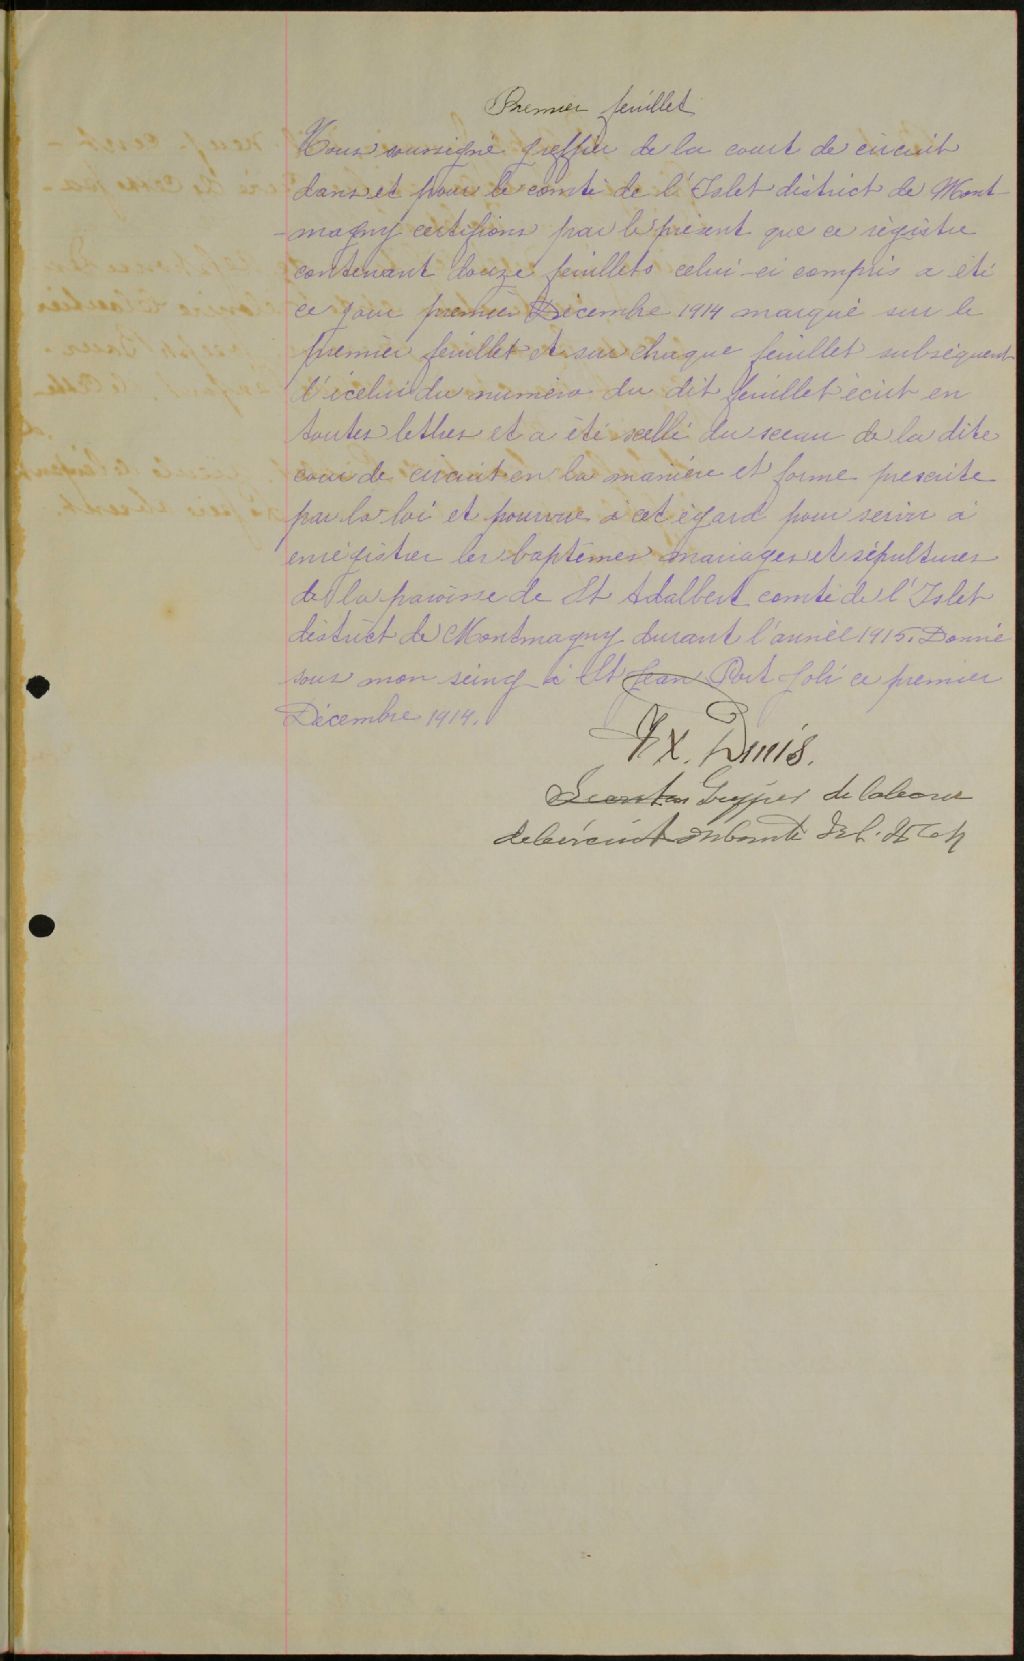 Premier feuillet
Nous soussigné greffier de la court de circuit
dans et pour le comté de l'Islet district de Mont
-magny certifions par le présent que ce régistre
contenant douze feuillets celui-ci compris a été
ce jour premier Décembre 1914 marqué sur le
premier feuillet et sur chaque feuillet subséquent
d'icelui du numéro du dit feuillet écrit en
toutes lettres et a été scellé du sceau de la dite
cour de circuit en la manière et forme prescrite
par la loi et pourvue à cet égard pour servir à
enrégistrer les baptêmes mariages et sépultures
de la paroisse de St Adalbert comté de l'Islet
district de Montmagny durant l'année 1915. Donné
sous mon seing à St Jean Port Joli ce premier
Décembre 1914.
Fx. Dunis.
Greffier de la cour
de circuit